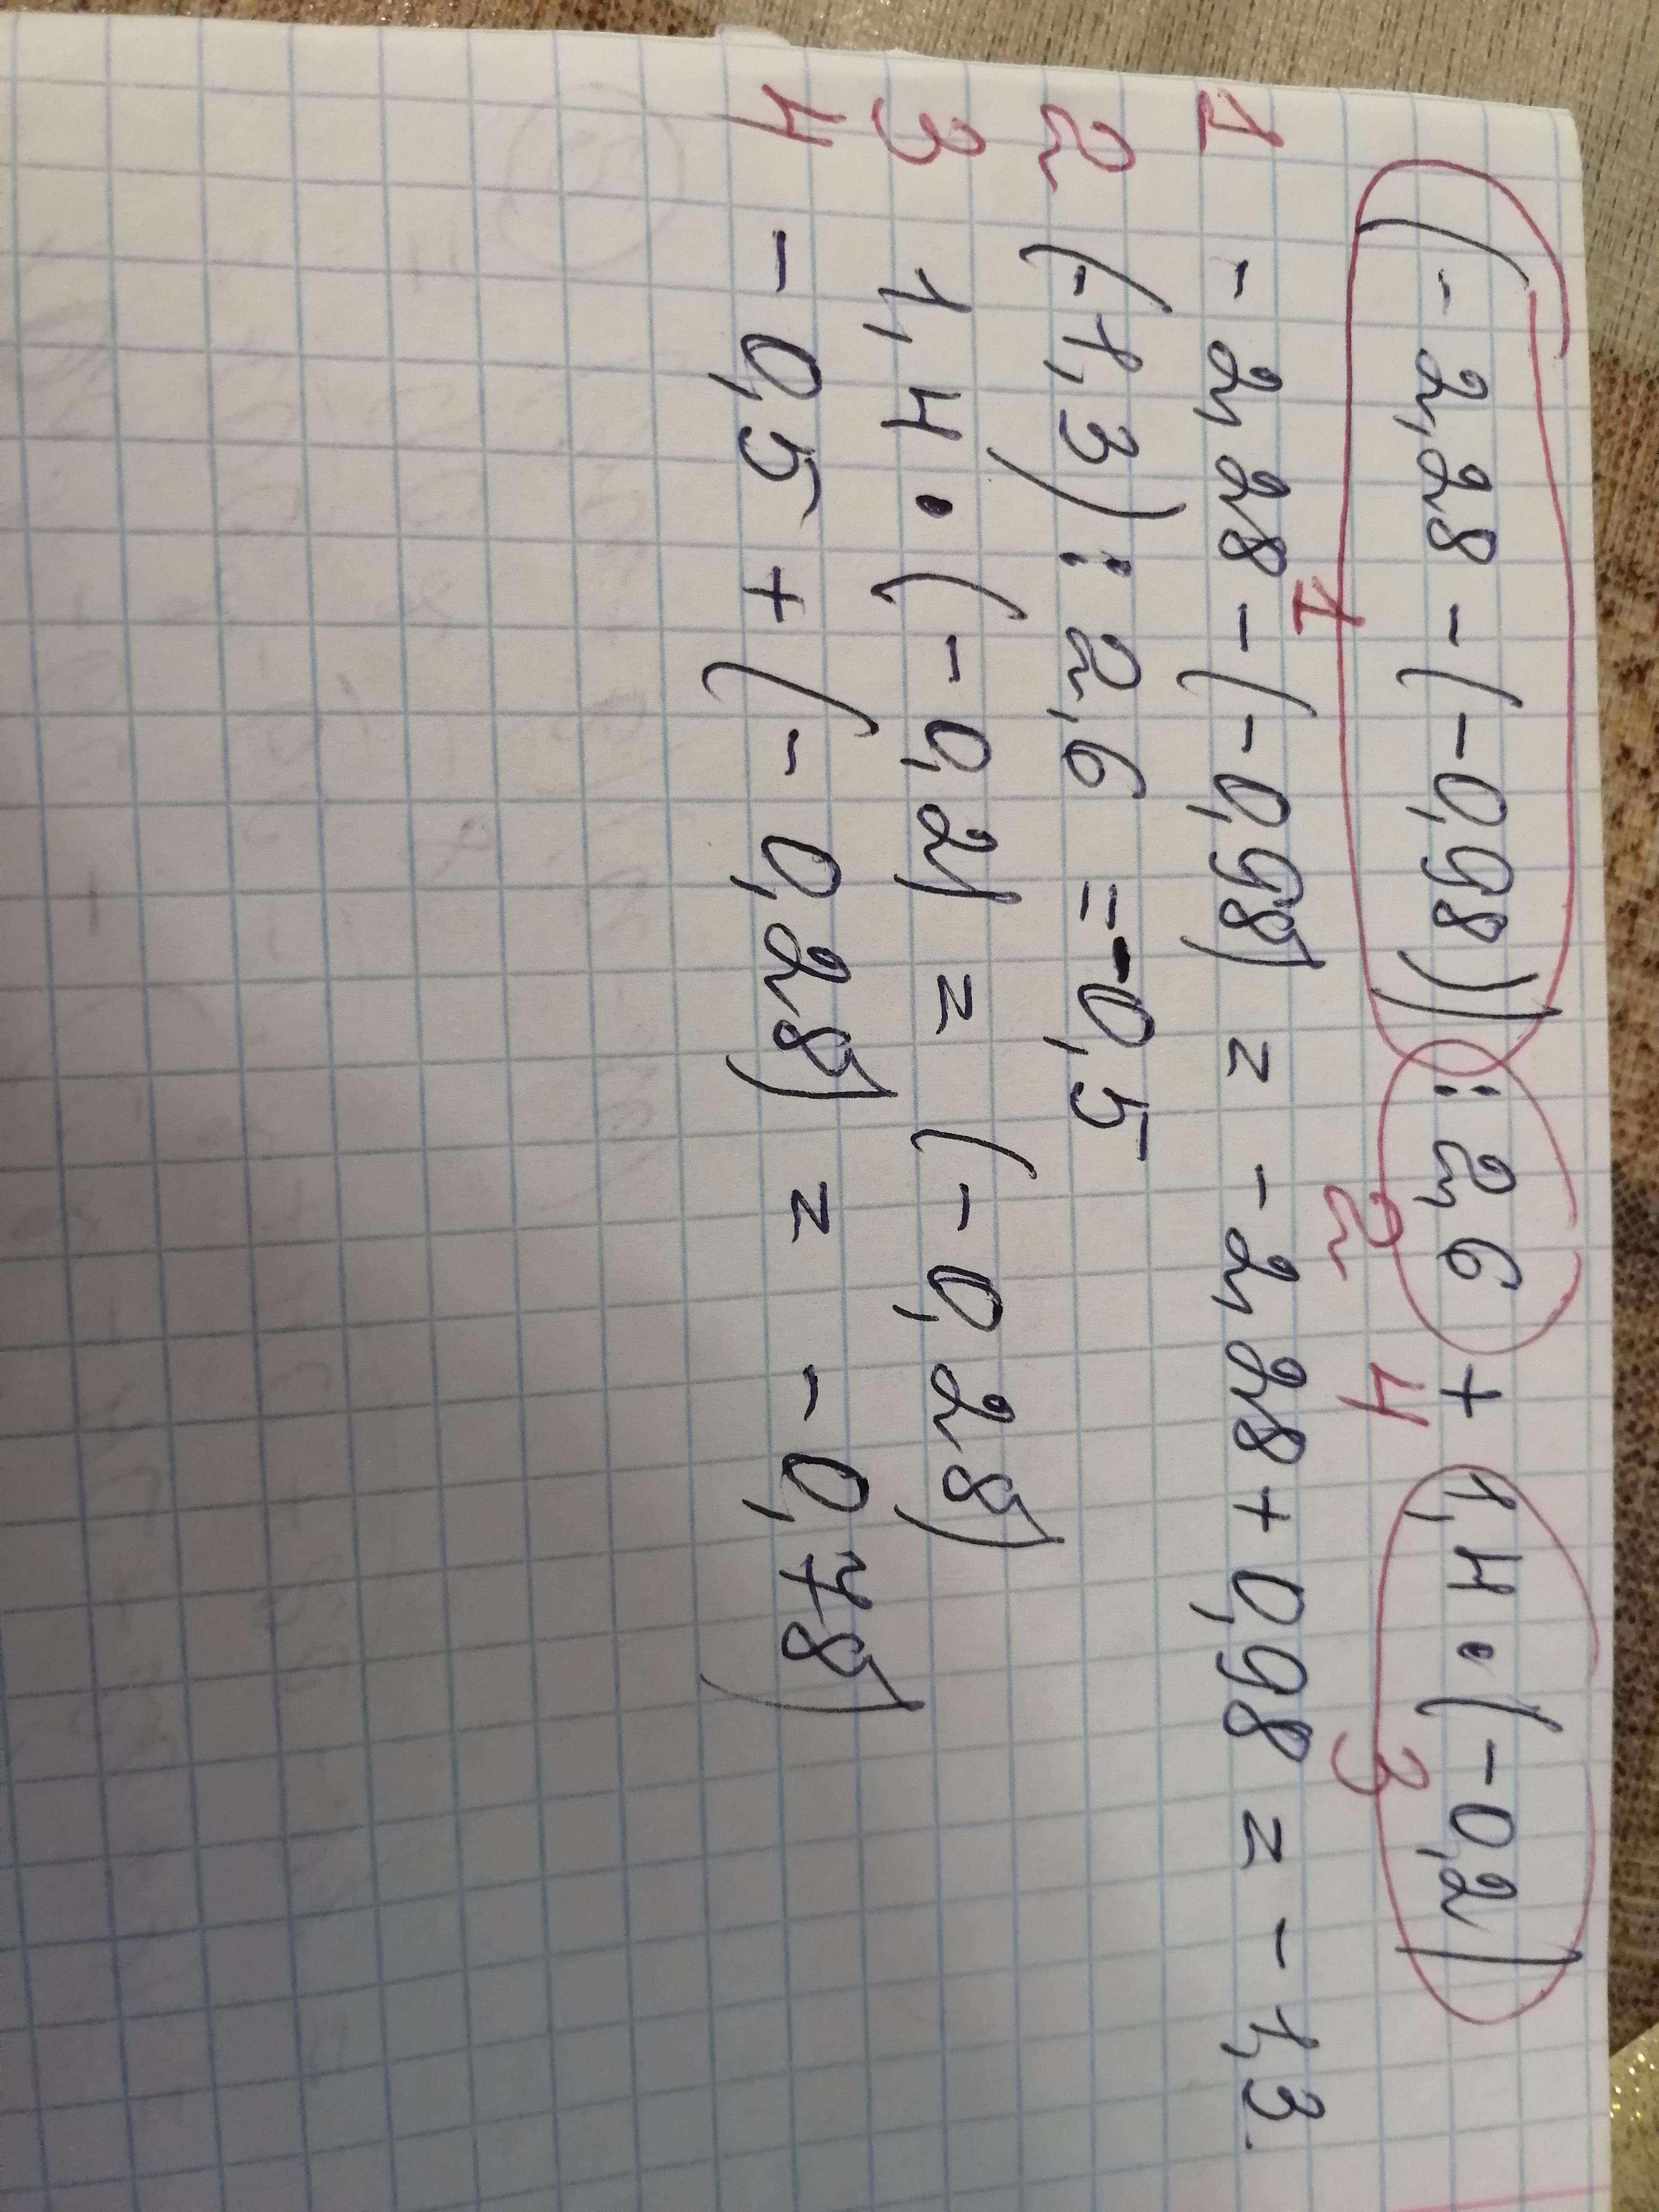 (-2,28-(-0,98)):2,6+1,4•(-0,2)
1 2 4 3
1 -2,28-(-0,98)=-2,28+0,98=-1,3.
2 (-1,3):2,6=-0,5
3 1,4•(-0,2)=(-0,28)
4 -0,5+(-0,28)=-0,78)